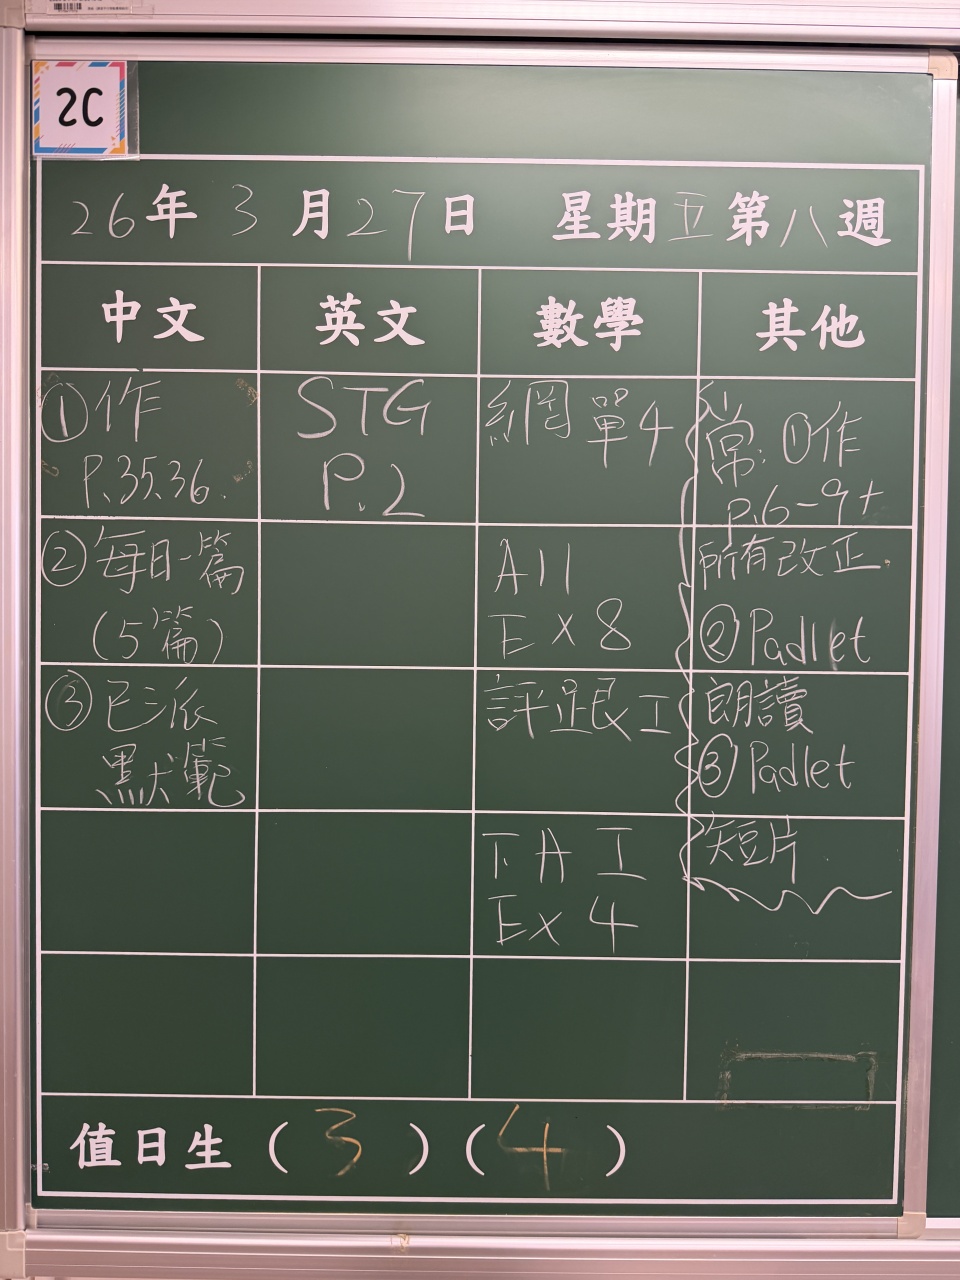 2C
26年3月27日 星期五第八週
中文 英文 數學 其他
①作
P.35.36.
②每日一篇
(5篇)
③已派
默範
STG
P.2
網單4
A11
Ex8
評
TAI
Ex4
常:①作
p.6-9+
所有改正.
②Padlet
朗讀
③Padlet
短片
值日生(3)(4)